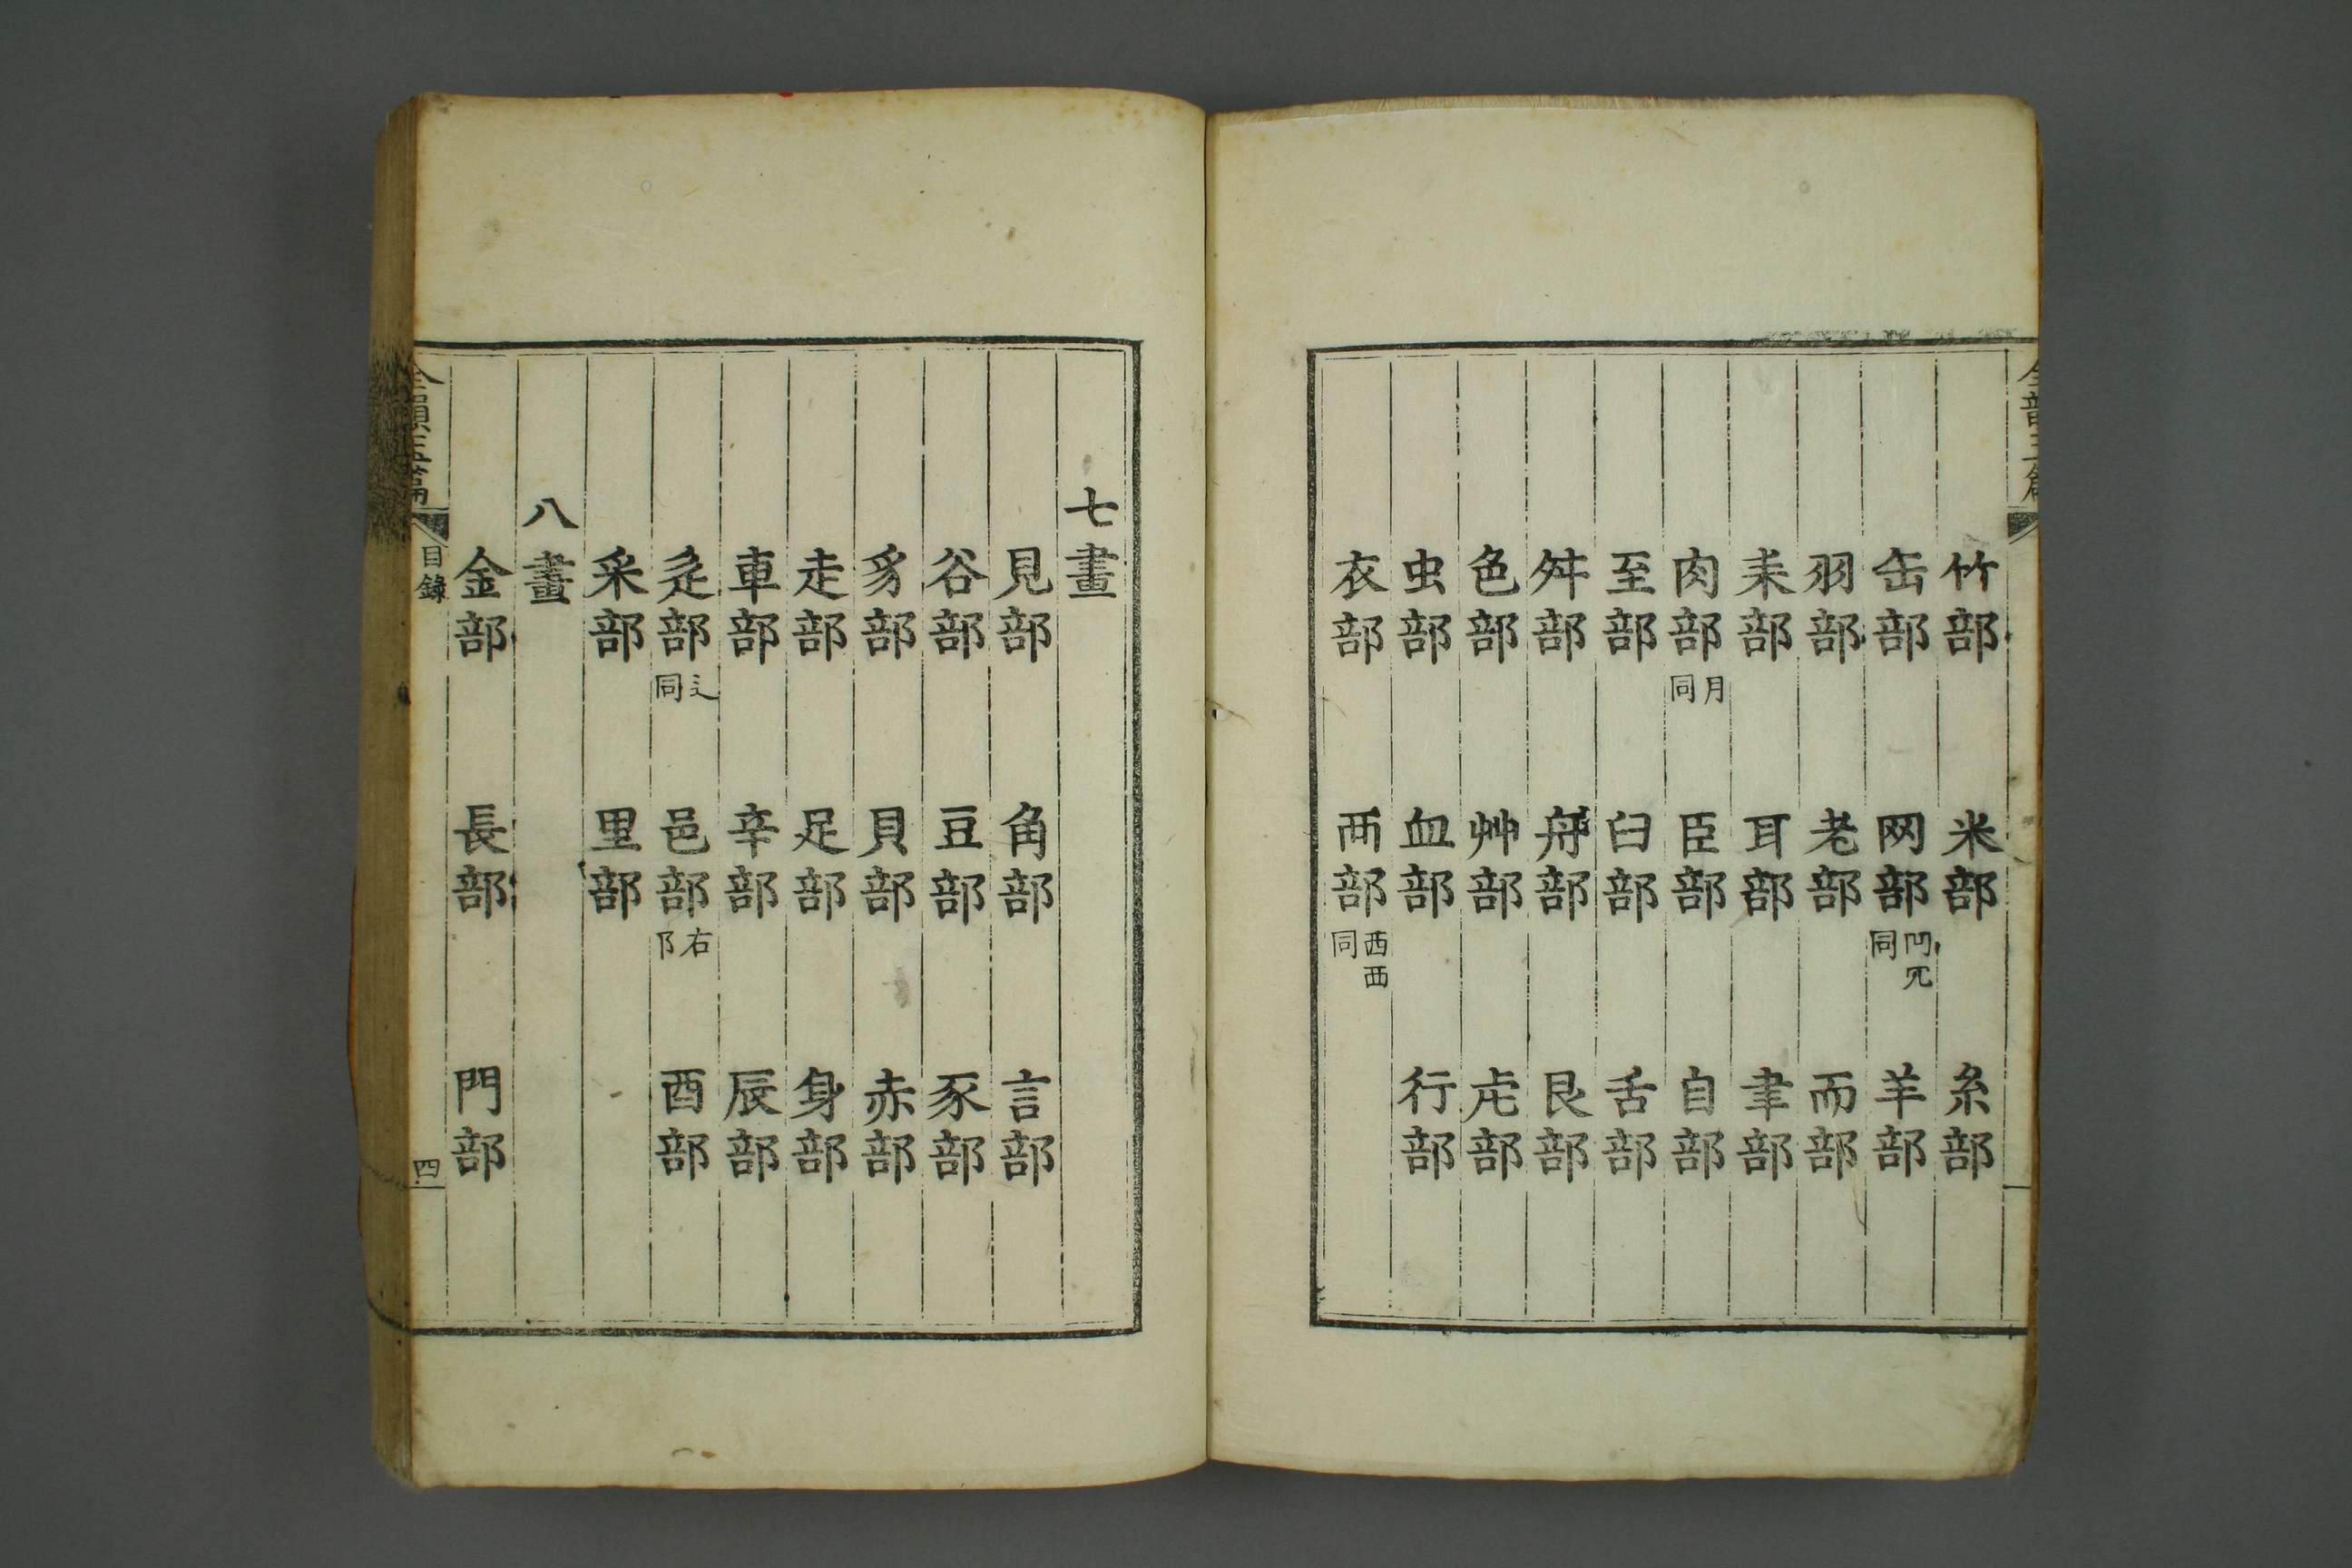 竹部 米部 糸部
缶部 网部 𦉰𦉫同 羊部
羽部 老部 而部
耒部 耳部 聿部
肉部 月同 臣部 自部
至部 臼部 舌部
舛部 舟部 艮部
色部 艸部 虍部
虫部 血部 行部
衣部 襾部 西覀同
七畫
見部 角部 言部
谷部 豆部 豕部
豸部 貝部 赤部
走部 足部 身部
車部 辛部 辰部
辵部 辶同 邑部 右阝 酉部
釆部 里部
八畫
金部 長部 門部
全韻玉篇 目錄 四